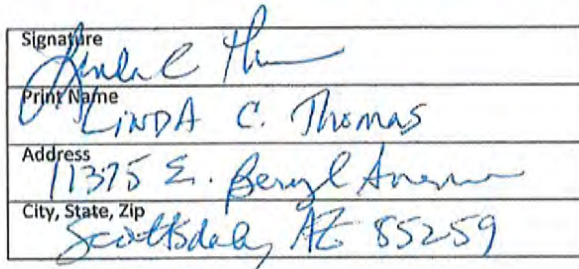 Signature
Linda C Th
Print Name
LINDA C. Thomas
Address
11375 E. Beryl Avenue
City, State, Zip
Scottsdale, AZ 85259